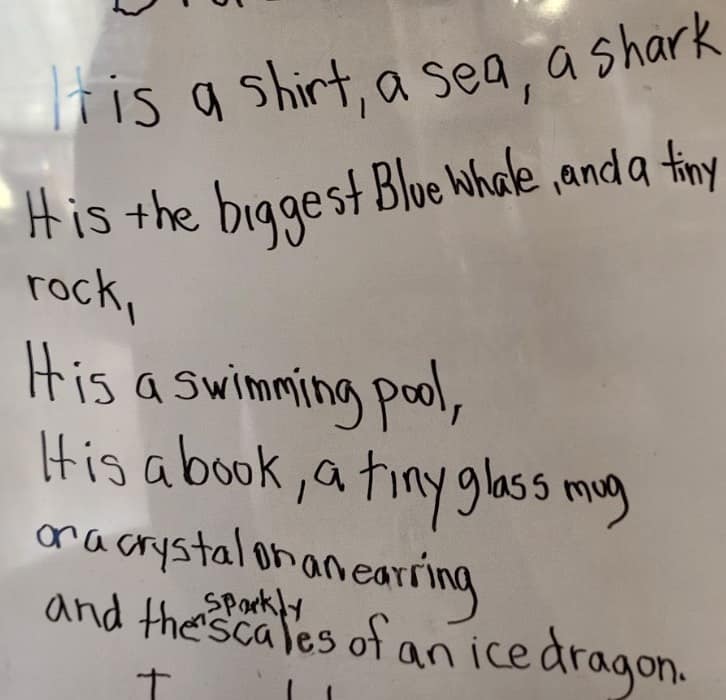 It is a shirt, a sea, a shark
It is the biggest Blue Whale, and a tiny
rock,
It is a swimming pool,
It is a book, a tiny glass mug
or a crystal on an earring
and the sparkly scales of an ice dragon.